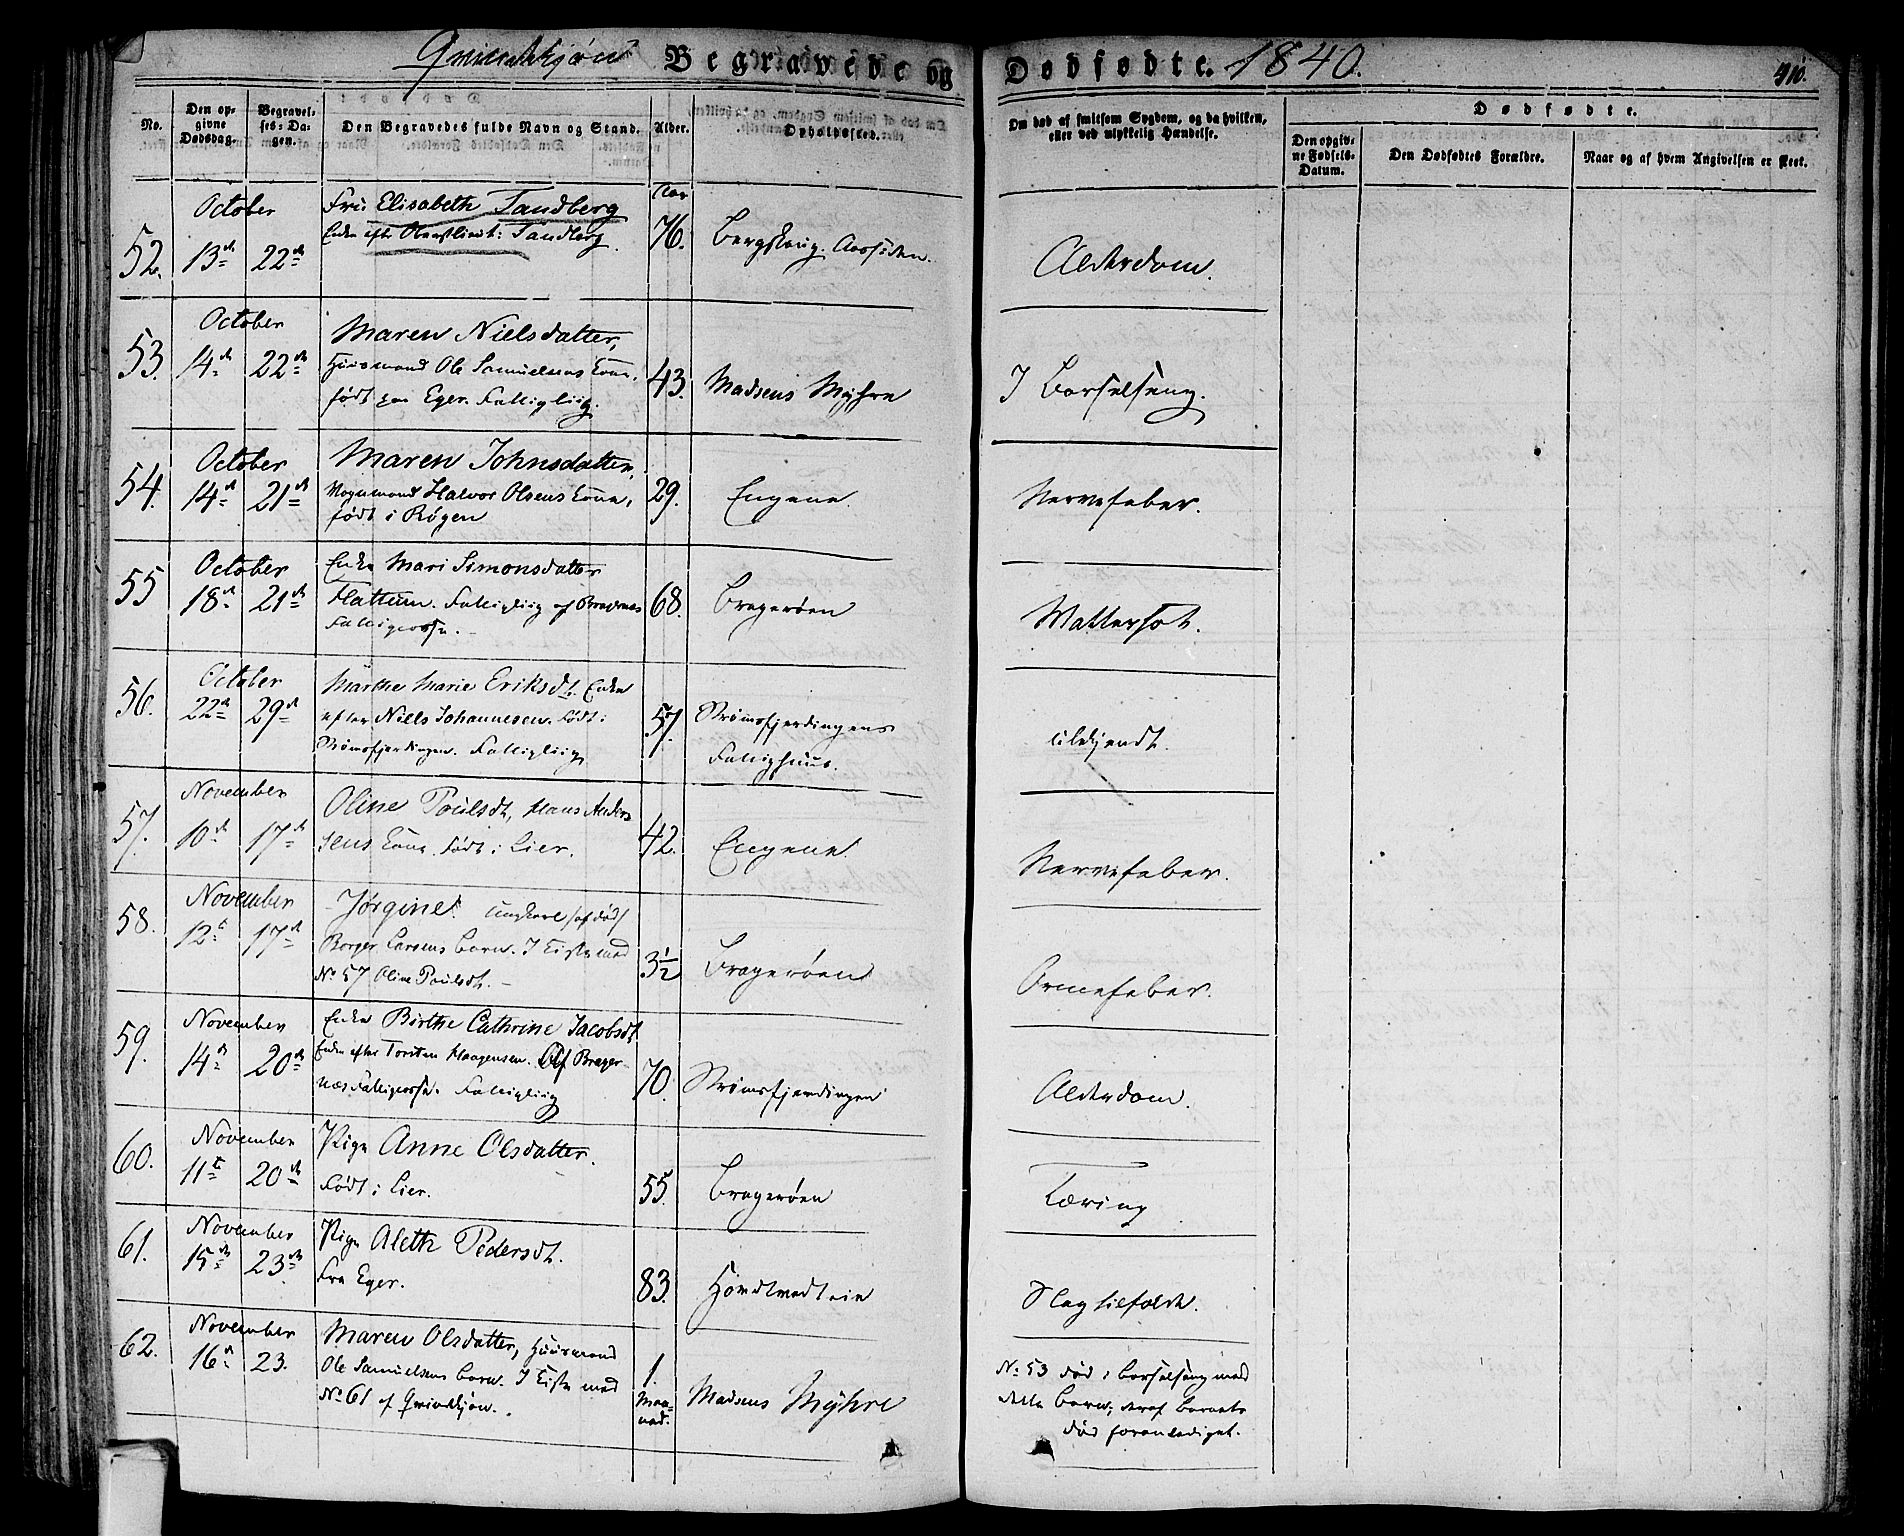 Qvindekjøn Begravede og Dødfødte. 1840. 410.
No. Den opgivne Dødsdag. Begravelses-Dagen. Den Begravedes fulde Navn og Stand. Alder. Opholdssted. Om død af smitsom Sygdom, og da hvilken, eller ved ulykkelig Hændelse. Dødfødte.
Den opgivne Fødsels-Datum. Den Dødfødtes Forældre. Naar og af hvem Angivelsen er skeet.
October Fru Elisabeth Tandberg Aar
52. 13de 22de Enke efter Oberstlieut: Tandberg. 76. Bergskoug. Aassiden. Alderdom.
October Maren Nielsdatter,
53. 14de 22de Huusmand Ole Samuelsens Kone, 43. Madsens Myhre I Barselseng.
født paa Eger. Fattiglig.
October Maren Johnsdatter,
54. 14de 21de Vognmand Halvor Olsens Kone, 29. Engene. Nervefeber.
født i Røgen
October Enke Mari Simonsdatter
55 18de 21de Flattum. Fattiglig af Bragernæs 68. Bragerøen Vattersot.
Fattigcasse.
October Marthe Marie Eriksdt. Enke
56. 22de 29de efter Niels Johannesen. Født i 57. Strømsfjerdingens Ubekjendt.
Strømsfjerdingen. Fattiglig. Fattighuus.
November Oline Poulsdt, Hans Ander
57. 10de 17de sens Kone. Født i Lier. 42. Engene. Nervefeber.
November Jørgine. Ungkarl /afdød/
58. 12te 17de Borger Larsens Barn. I Kiste med 3½ Bragerøen Ormefeber.
No 57 Oline Poulsdt. -
November Enke Birthe Cathrine Jacobsdt
59. 14de 20de Enke efter Torsten Haagensen. Af Brager-
næs Fattigcasse. Fattiglig 70. Strømsfjerdingen Alderdom.
November Pige Anne Olsdatter.
60. 11te 20de Født i Lier. 55. Bragerøen Tæring
November Pige Aleth Pedersdt.
61. 15de 23de Fra Eger. 83. Hovdtvedteie Slagtilfælde.
November Maren Olsdatter, Huusmand
62. 16de 23. Ole Samuelsens Barn. I Kiste med 1. No 53 død i Barselseng med
No 61 af Qvindekjøn. Maaned. Madsens Myhre dette Barn; deraf Barnets
død foranlediget.